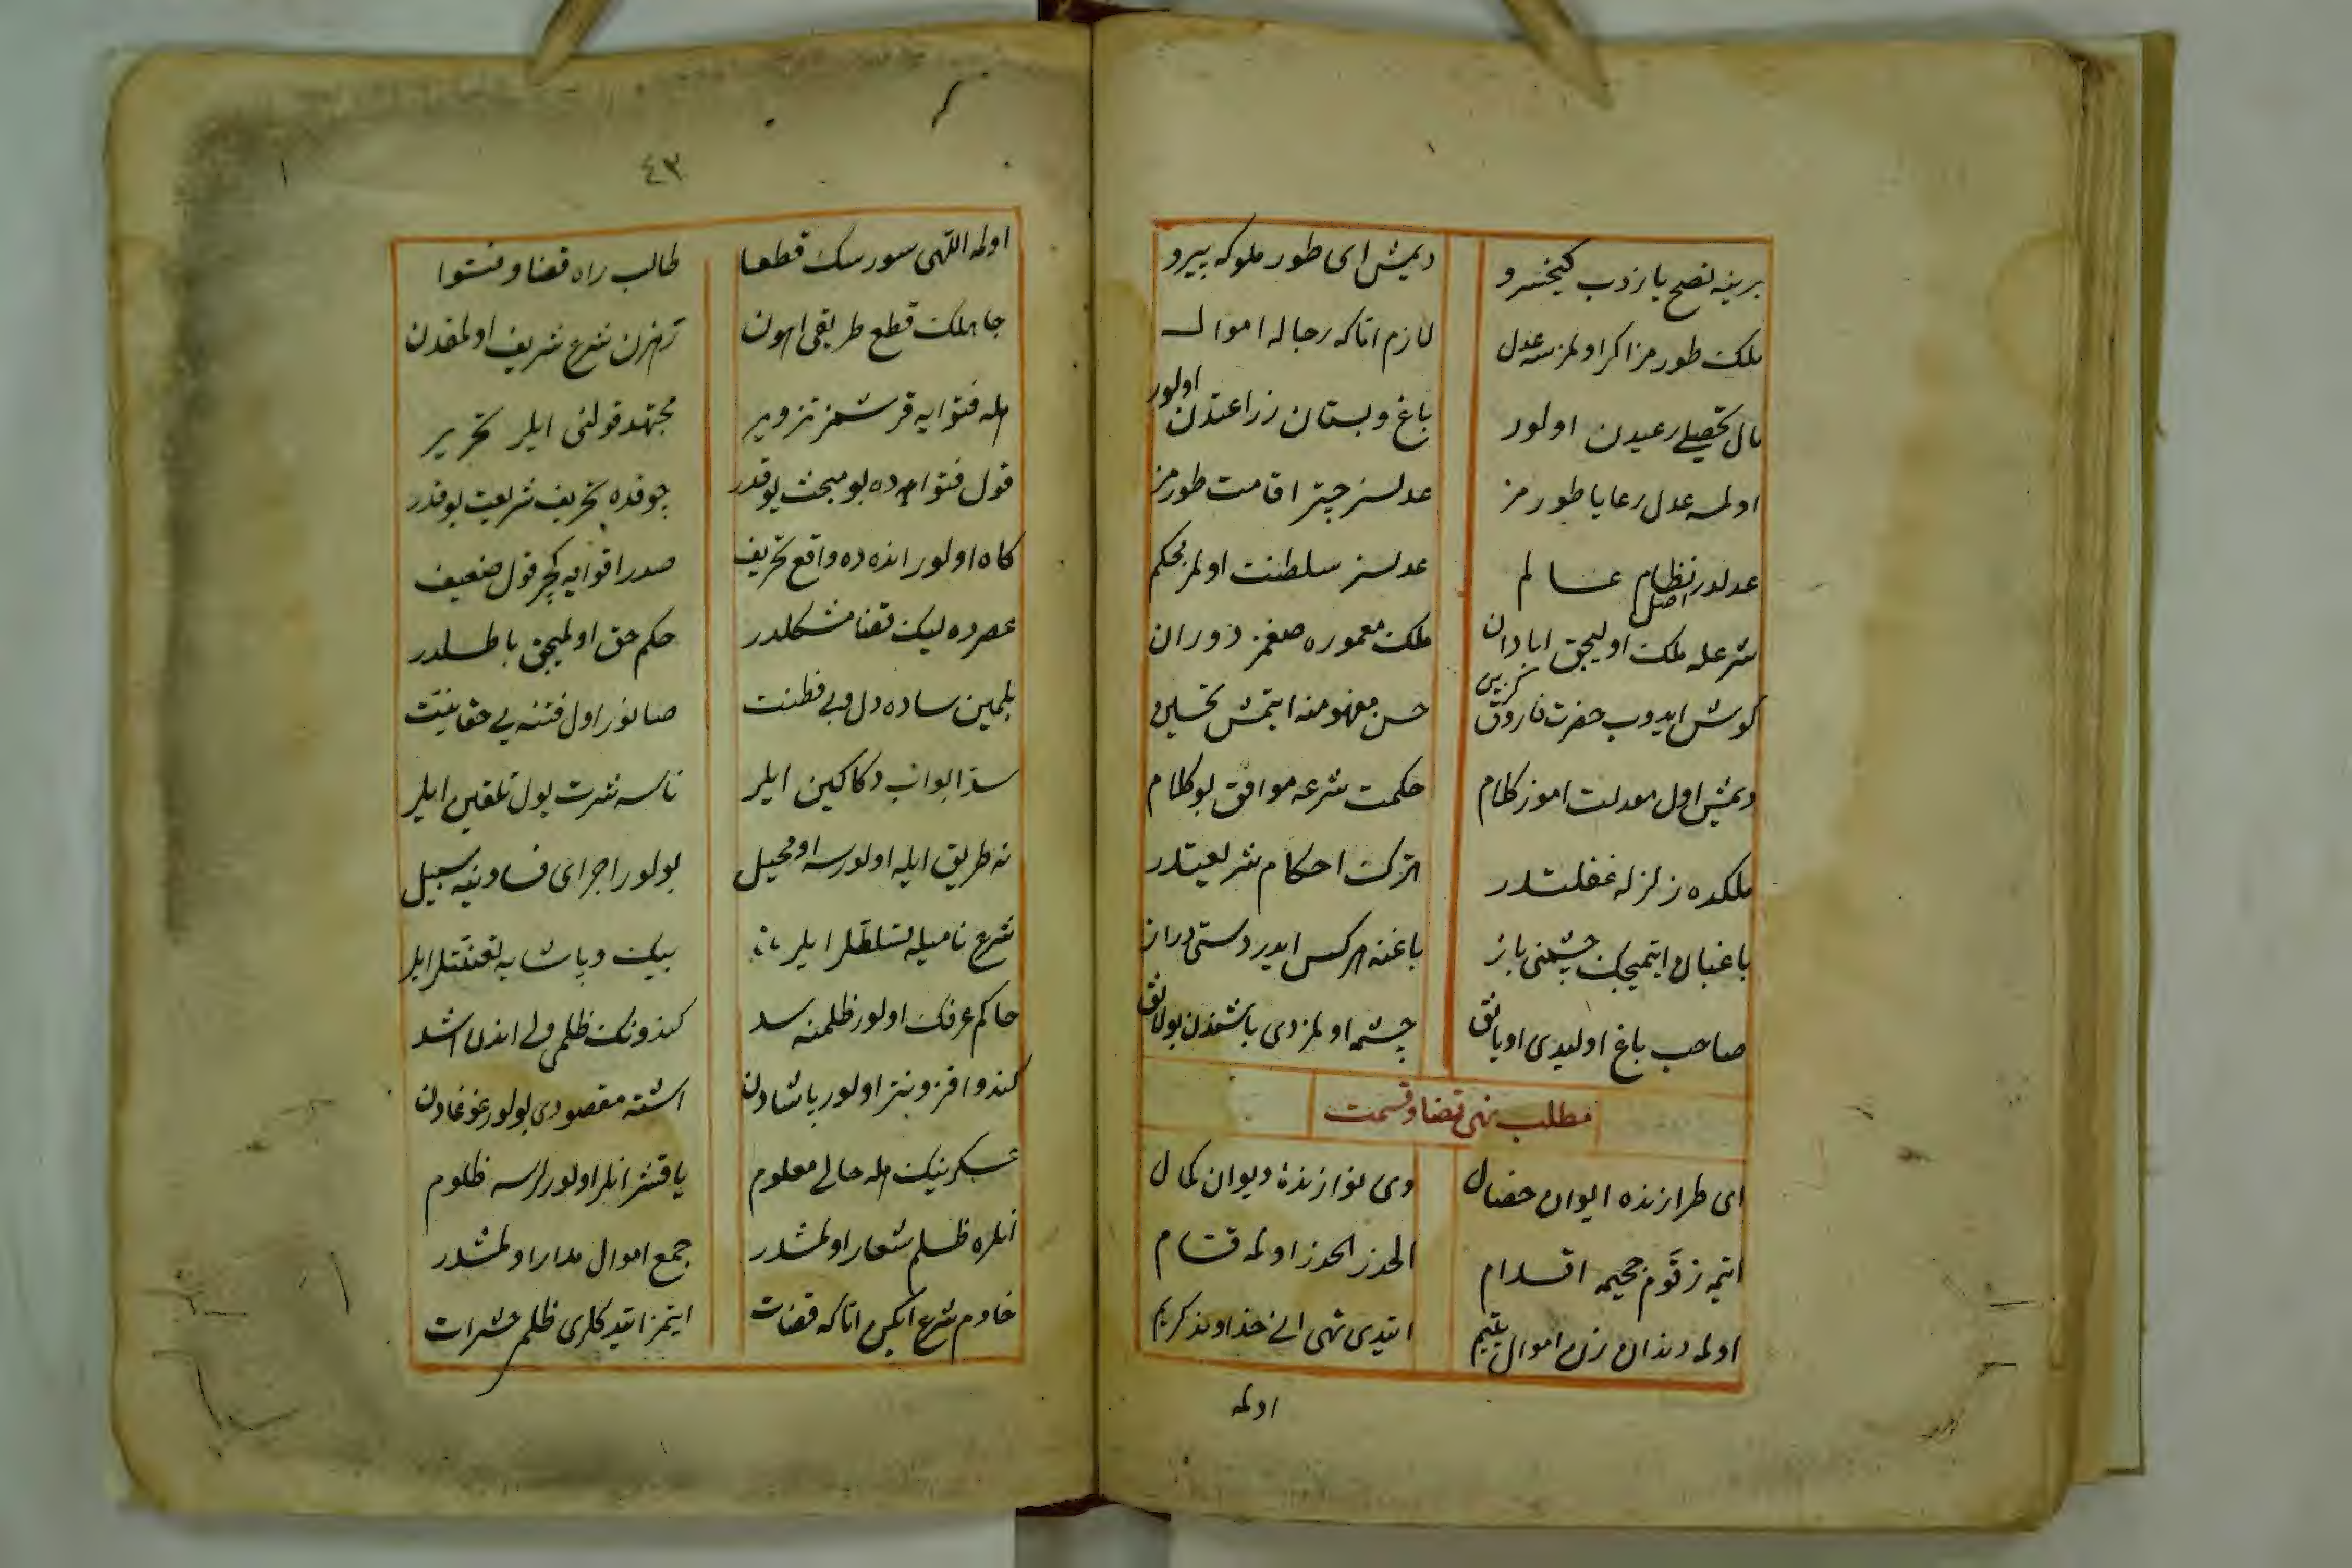 برینه نصح یازدب کیخسرو دیمیش ای طور ملوکه پیرو
ملک طورمز اکر اولمزسه عدل لازم اتا که رجاله اموال
مال تحصیلی رعیدن اولور باغ و بستان زراعتدن اولور
اولمسه عدل رعایا طورمز عدلسز چتر اقامت طورمز
عدلدر اصل نظام عالم عدلسز سلطنت اولمز محکم
شرعله ملک اولیجق ابادان ملک معموره صغمز دوران
کوش ایدوب حضرت فاروق حسن مفهومنه ایتمش تحسین
دیمش اول معدلت اموز کلام حکمت شرعه موافق بو کلام
ملکده زلزله غفلتدر ترک احکام شریعتدر
باغبان ایتمیجک چشمنی باز باغنه هرکس ایدر دستی دراز
صاحب باغ اولیدی اویانق چشمه اولمزدی باشندن بولانق
مطلب نهی قضا و قسمت
ای طرازنده ایوان خصال وی نوازندهٔ دیوان کمال
ایتمه زقوم جحیمه اقدام الحذر الحذر اولمه قسام
اولمه دندان زن اموال یتیم ایتدی نهی انی خداوند کریم
اولمه
٤٣
اولمه اللهی سورسک قطعا طالب راه قضا و فتوا
جاهلک قطع طریقی اهون رهزن شرع شریف اولمقدن
اهله فتوایه قرشمز تزویر مجتهد قولنی ایلر تحریر
قول فتواده بو مبحث یوقدر چوقده تحریف شریعت یوقدر
کاه اولور انده ده واقع تحریف صدر اقوایه کچر قول ضعیف
عصرده لیک قضا مشکلدر حکم حق اولمیجق باطلدر
بلمین ساده دل و بی فطنت صانور اول فتنه یی حقانیت
سد ابواب دکاکین ایلر ناسه نفرت یول تلقین ایلر
نه طریق ایله اولورسه او محیل بولور اجرای فسادینه سبیل
شرع نامیله تسلطلر ایلر بیک و پاشایه تعنتلر ایلر
حاکم عرفک اولور ظلمنه سد کندونک ظلمی ولی اندن اشد
کندو افزونتر اولور پاشادن اشته مقصودی بولور غوغادن
عسکرینک هله حالی معلوم یاقشر انلر اولورلرسه ظلوم
انلره ظلم شعار اولمشدر جمع اموال مدار اولمشدر
خادم شرع ایکن اتا که قضات ایتمز ایتدکلری ظلم حشرات